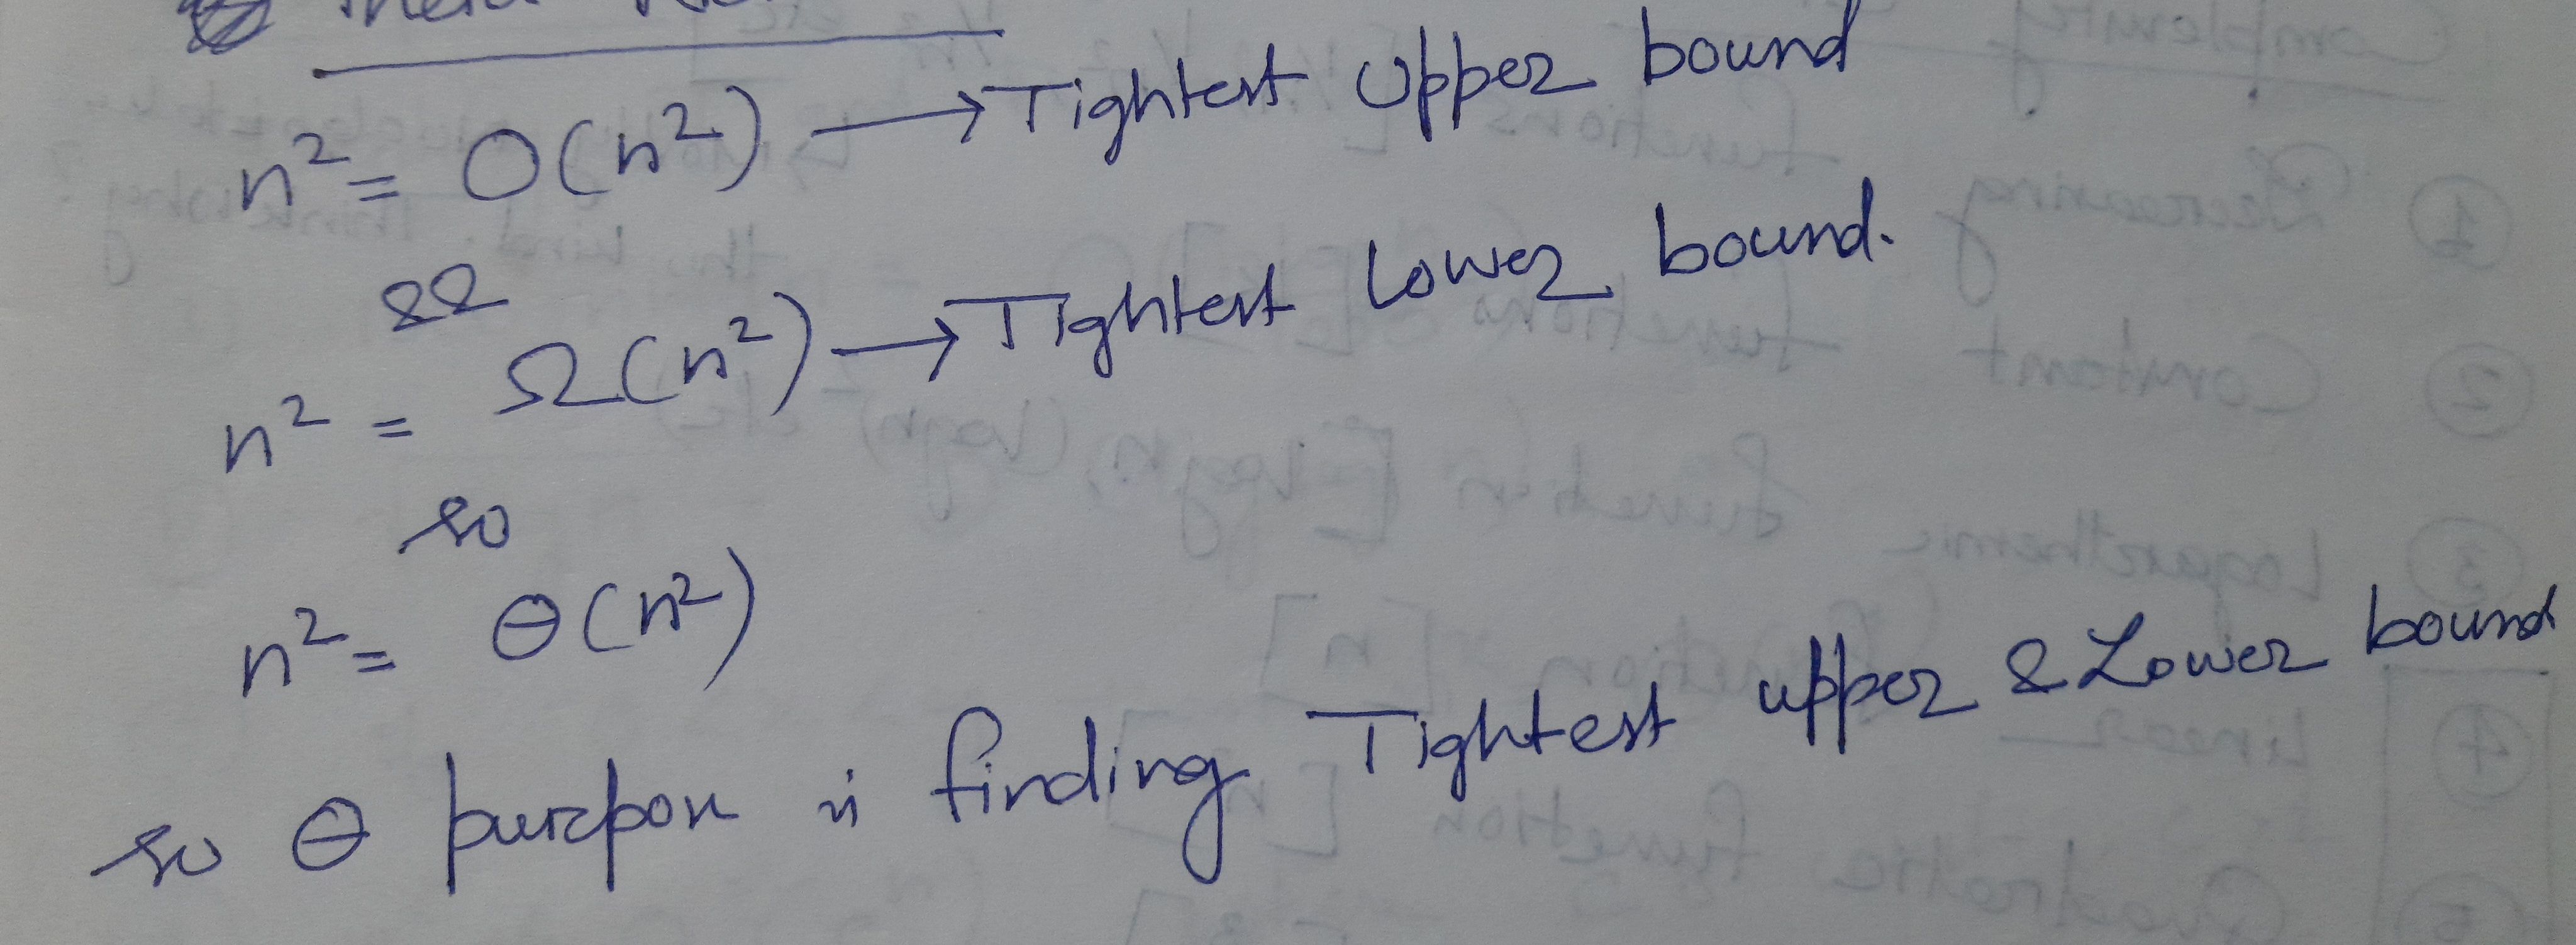 n² = O(n²) → Tightest Upper bound
&&
n² = Ω(n²) → Tightest Lower bound.
so
n² = θ(n²)
so θ purpose is finding Tightest upper & Lower bound